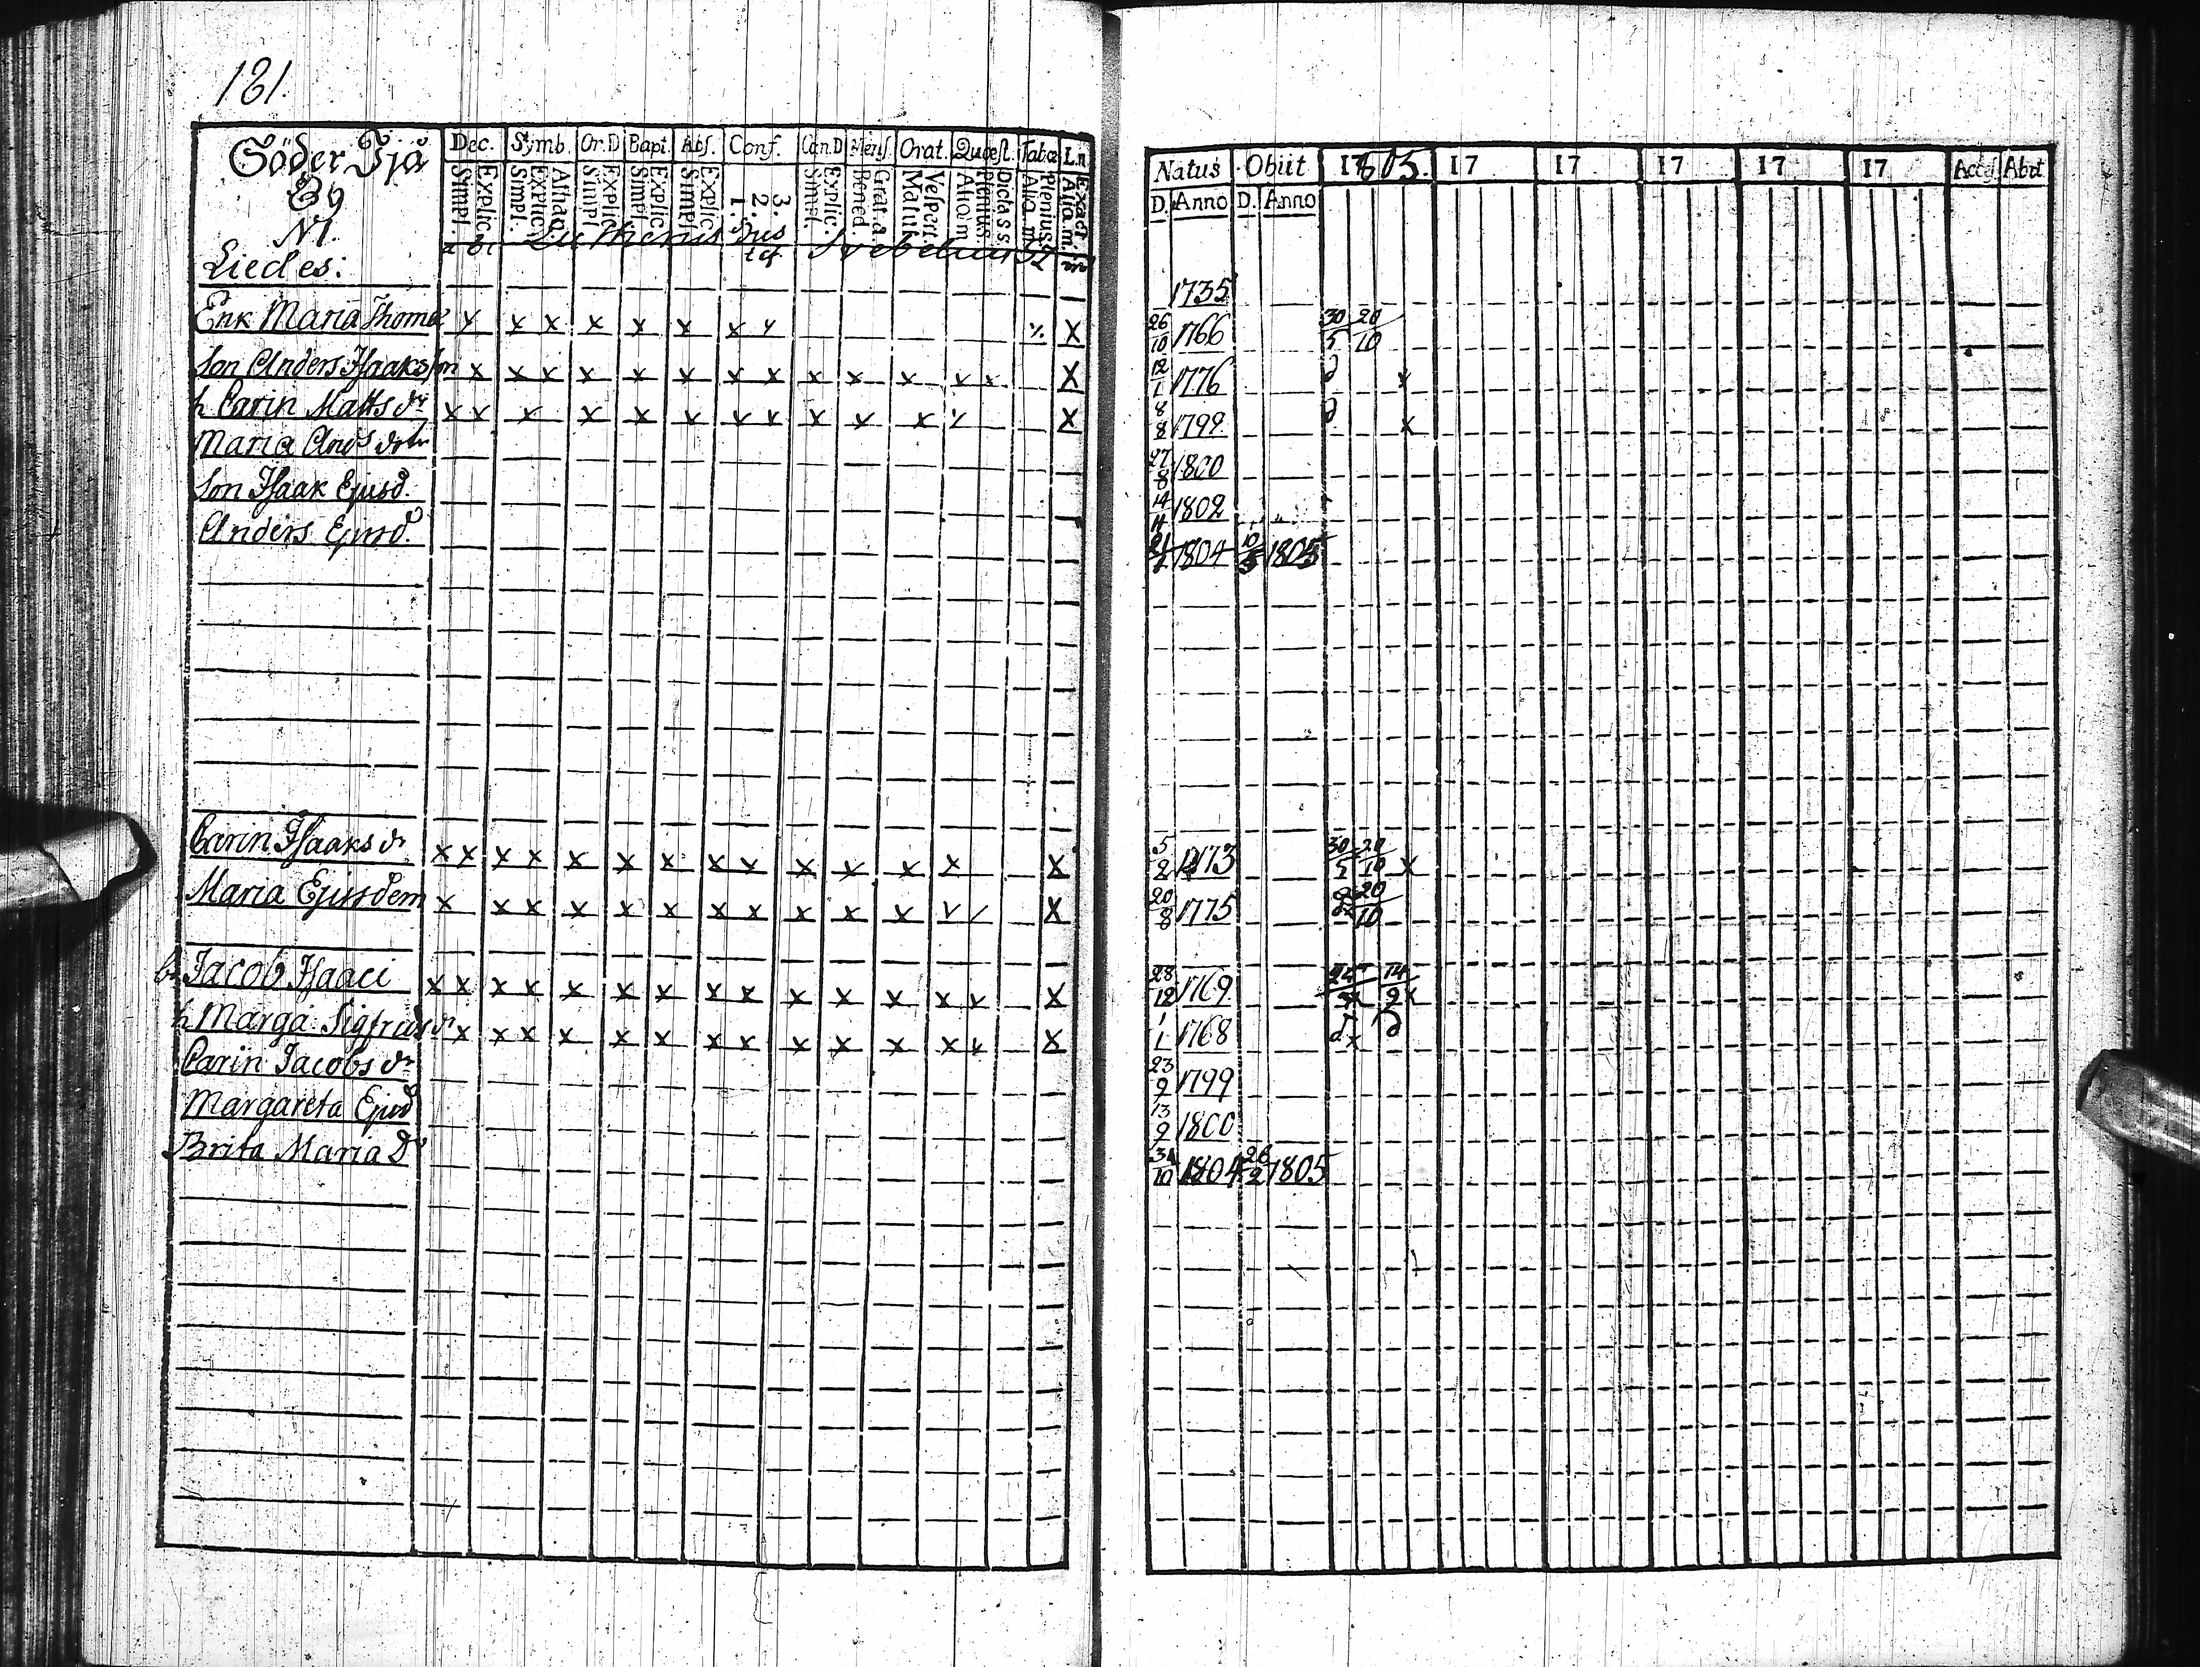 181.
Söder Tjä
By
N 1.
Liedes:
Dec. Symb. Or.D Bapt. Abs. Conf. Can.D Mens. Orat. Quæst. Tabæ L.n
Simpl. Explic. Simpl. Explic. Athan. Simpl. Explic. Simpl. Explic. Simpl. Explic. 1. 2. 3. Simpl. Explic. Bened. Grat. a. Matut. Vespert. Alio m. Plenius Dicta s s. Alio m. Plenius Alia m. Exact.
Lutherus Svebelius
Natus Obiit 17805. 17 17 17 17 17 Acces. Abit.
D. Anno D. Anno
Enk Maria Thomæ x x x x x x x x X 1735
Son Anders Isaaksson x x x x x x x x x x x x x X 26/10 1766 30/5 20/10
h Carin Matts dr x x x x x x x x x x x X 12/1 1776 x
Maria Ands dotr 8/8 1799 x
Son Isaak Ejusd. 27/8 1800
Anders Ejusd. 14/11 1802
21 1804 10/5 1805
Carin Isaaks dr x x x x x x x x x x x x x X 5/2 1773 30/5 20/10 x
Maria Ejusdem x x x x x x x x x x x X 20/8 1775 20/10
Jacob Isaaci x x x x x x x x x x x x x x X 28/12 1769 14/9 x
h Marga Sigfrids dr x x x x x x x x x x x x x X 1/1 1768
Carin Jacobs dr 23/9 1799
Margareta Ejusd 13/9 1800
Brita Maria Do 31/10 1804 26/2 1805